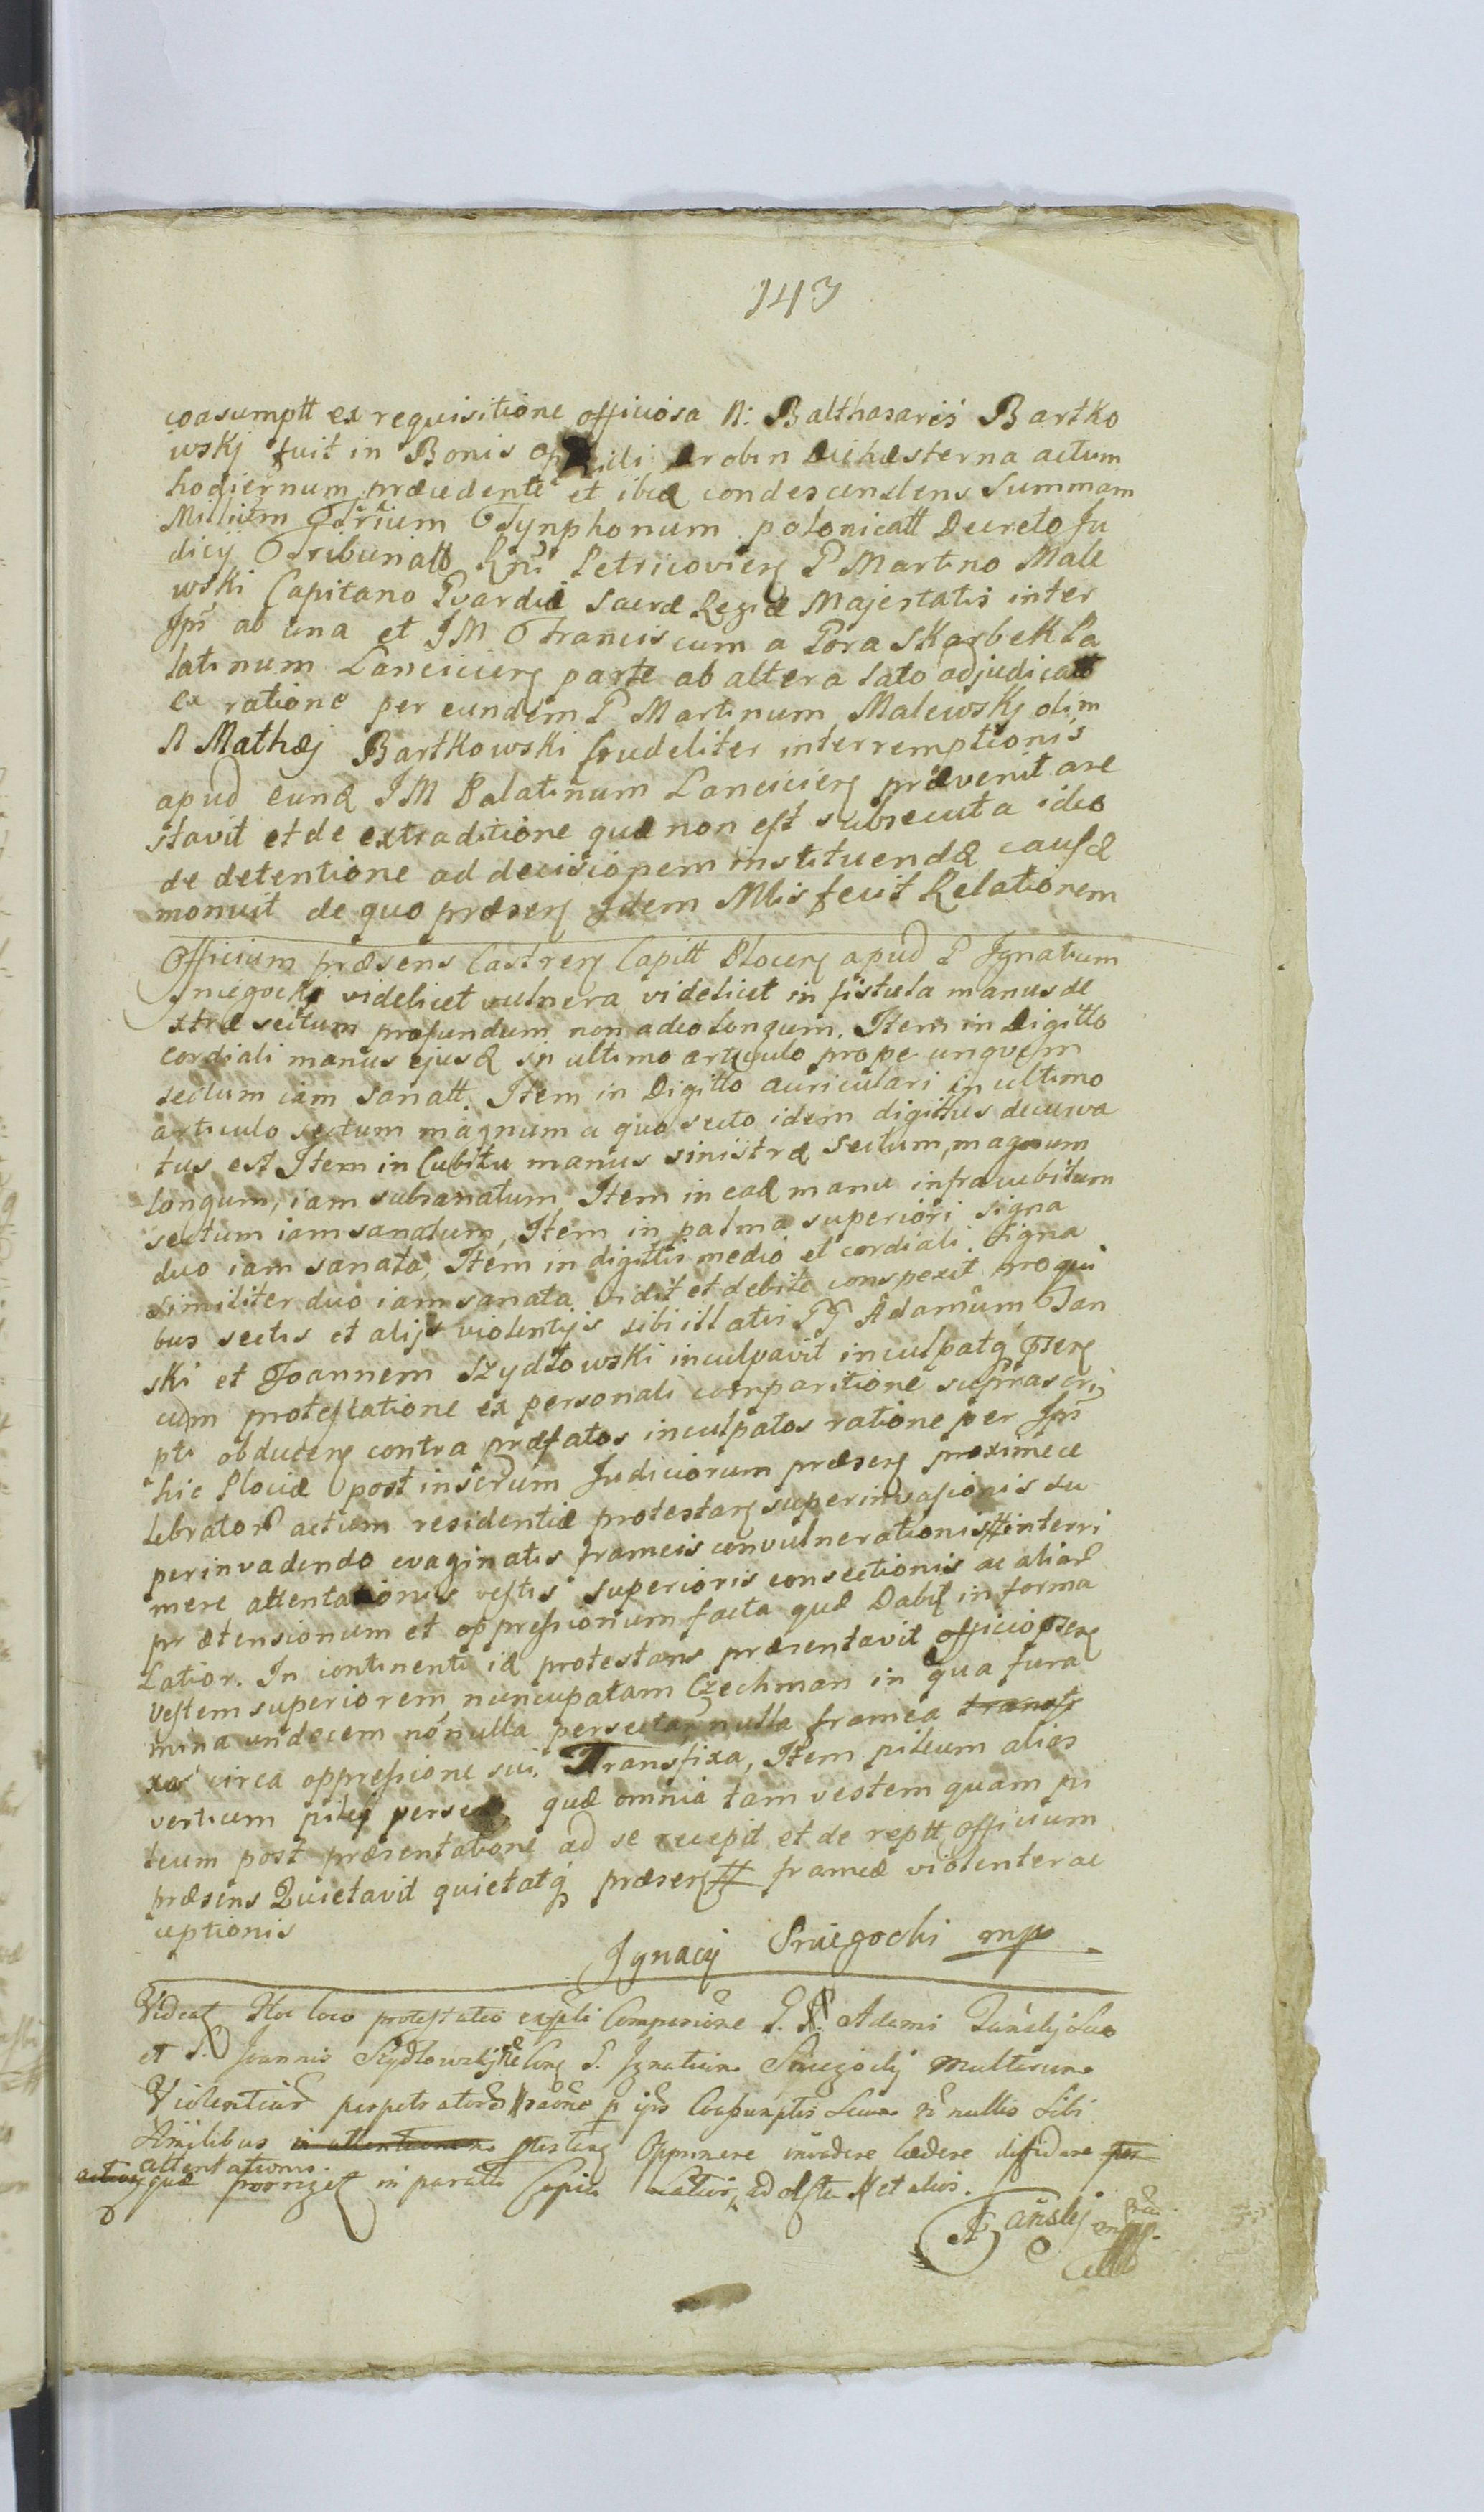 143
coasumptt ex requisitione officiosa N: Balthasaris Bartko
wskj fuit in Bonis Drobin die hæsterna actum
hodiernum præcedente et ibid condescendens Summam
Millium Trium Tynphonum polonicatt Decreto Ju
dicij Tribunatt Rñi Petricovien P Martino Male
wski Capitano Gvardiæ Sacræ Regiæ Majestatis inter
Jpm̃ ab una et JM Franciscum a Gora Skarbek Pa
latinum Lancicien parte ab altera lato adjudicatt
ex ratione per eundem P Martinum Malewskj olim
N Mathæj Bartkowski Crudeliter interremptionis
apud eund JM Palatinum Lancicien prævenit are
stavit et de extraditione quæ non est subsecuta ideo
de detentione ad decisionem instituendæ causæ
monuit de quo præsen Idem Mlis fecit Relationem
Officium præsens Castren Capitt Plocen apud P Ignatium
Sniegockj videlicet vulnera videlicet in fistula manus de
xtræ sectum profundum non adeo longum. Item in Digitto
cordiali manus ejusd in ultimo articulo prope unguem
sectum iam sanatt. Item in Digitto auriculari in ultimo
articulo sectum magnum a quo secto idem digittus decurva
tus est Item in Cubitu manus sinistræ sectum, magnum
longum, iam subsanatum, Item in ead manu infra cubitum
sectum iam sanatum, Item in palma superiori signa
duo iam sanata, Item in digittis medio et cordiali signa
similiter duo iam sanata vidit et debite conspexit pro qui
bus sectis et alijs violentijs sibi illatis PP Adamum Tan
ski et Joannem Szydłowski inculpavit inculpatq præsen
cum protestatione ex personali comparitione suprascri
pti obducen contra præfatos inculpatos ratione per Jpm̃
hic Plociæ post inscrum Judiciorum præsen proxime ce
lebrator actum residentiæ protestan superinvasionis su
perinvadendo evaginatis frameis convulnerationis # interri
mere attentationis vestis superioris consectionis ac aliar
prætensionum et oppressionum facta quæ Dabit in forma
Latior. In continenti id protestans præsentavit officio præsen
Vestem superiorem nuncupatam Czechman in qua fora
mina undecem nonnulla persecta, nulla framea transfi
xa circa oppressione sui. Transfixa, Item pileum alias
verticem pilej, quæ omnia tam vestem quam pi
leum post præsentatione ad se recepit et de reptt officium
præsens Quietavit quietatq præsen # frameæ violenter ac
ceptionis
Ignacy Sniegocki mp
Videat Hoc loco protestatio Comparitione P. Adami Tanskj
et P. Joannis Szydłowskj P. Ignatium Sniegockj multarum
Violentiar perpetrator p ijs Coasumptis secum nullis sibi
Similibus in attentionem opprimere invadere lædere diffidare per
attentationis.
quæ porriget in paratu Copia Latior, ad alios.
A Tanskj mp